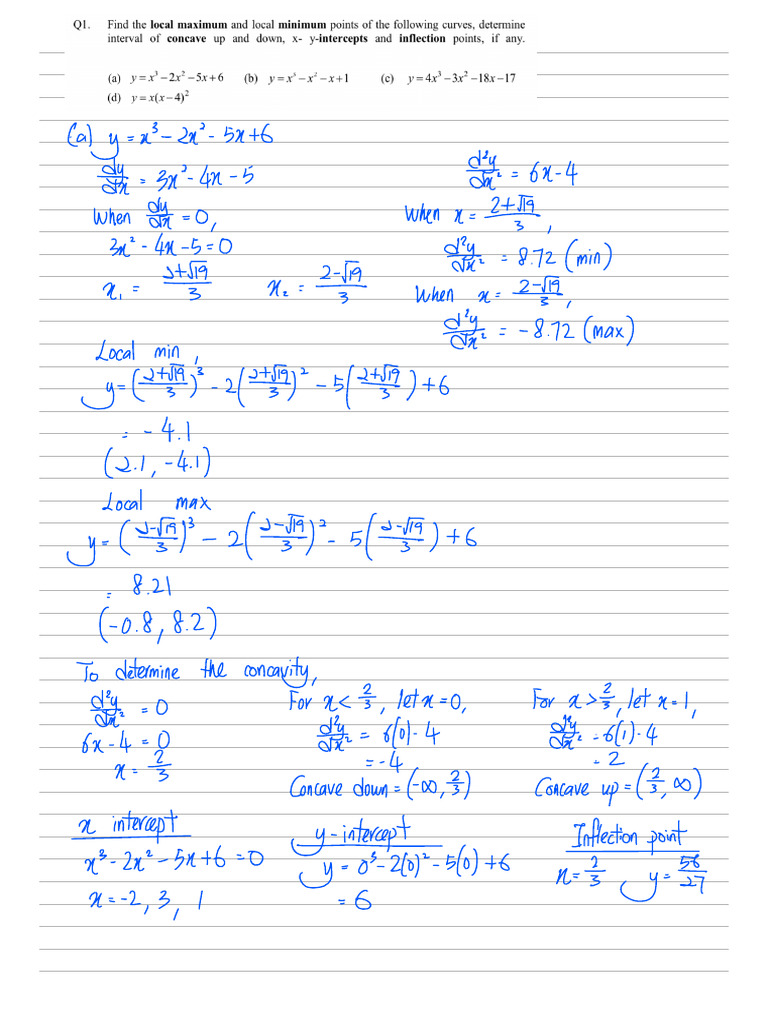 Q1. Find the local maximum and local minimum points of the following curves, determine
interval of concave up and down, x- y-intercepts and inflection points, if any.
(a) y = x³ − 2x² − 5x + 6 (b) y = x³ − x² − x + 1 (c) y = 4x³ − 3x² − 18x − 17
(d) y = x(x − 4)²
(a) y = x³ − 2x² − 5x + 6
dy/dx = 3x² − 4x − 5
When dy/dx = 0,
3x² − 4x − 5 = 0
x₁ = (2+√19)/3 x₂ = (2−√19)/3
d²y/dx² = 6x − 4
When x = (2+√19)/3,
d²y/dx² = 8.72 (min)
When x = (2−√19)/3,
d²y/dx² = −8.72 (max)
Local min,
y = ((2+√19)/3)³ − 2((2+√19)/3)² − 5((2+√19)/3) + 6
= −4.1
(2.1, −4.1)
Local max
y = ((2−√19)/3)³ − 2((2−√19)/3)² − 5((2−√19)/3) + 6
= 8.21
(−0.8, 8.2)
To determine the concavity,
d²y/dx² = 0
6x − 4 = 0
x = 2/3
For x < 2/3, let x = 0,
d²y/dx² = 6(0) − 4
= −4
Concave down = (−∞, 2/3)
For x > 2/3, let x = 1,
d²y/dx² = 6(1) − 4
= 2
Concave up = (2/3, ∞)
x intercept
x³ − 2x² − 5x + 6 = 0
x = −2, 3, 1
y-intercept
y = 0³ − 2(0)² − 5(0) + 6
= 6
Inflection point
x = 2/3 y = 56/27